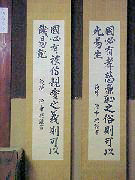 國必有孝慈廉恥之俗則可以
死易生
國必有禮信親愛之義則可以
飢易飽